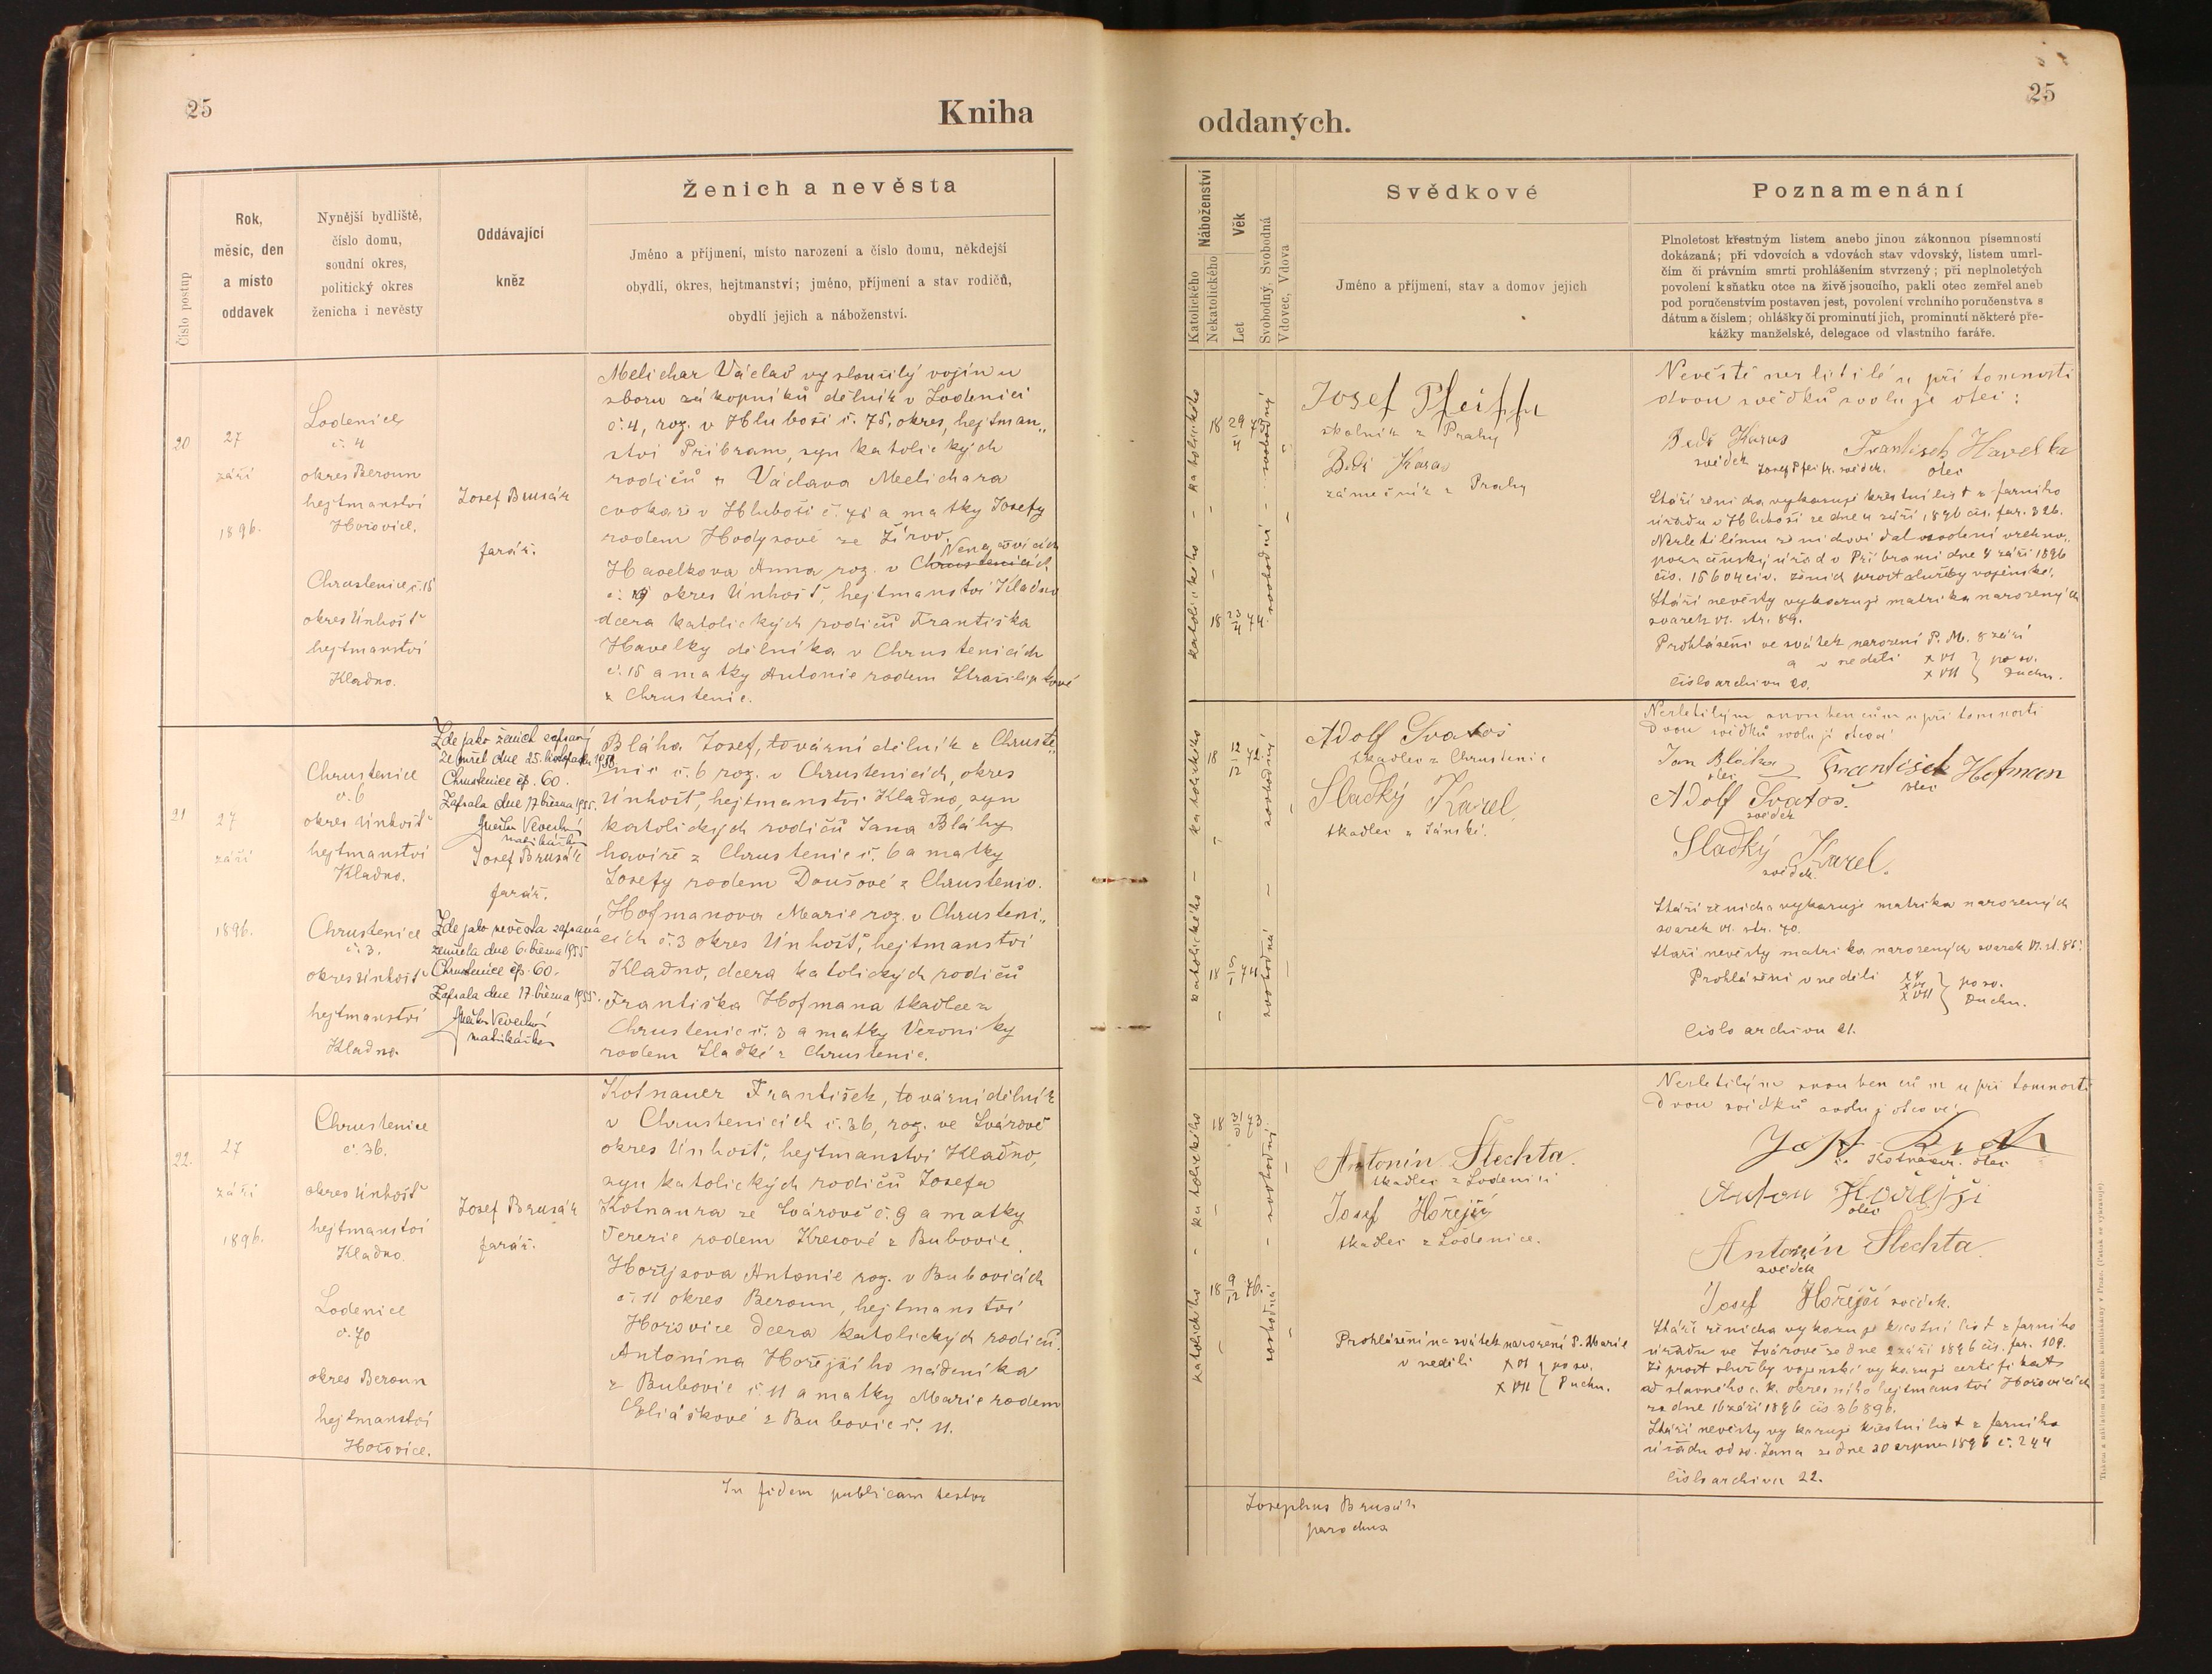 25
Kniha
oddaných.
25
Číslo postup
Rok,
měsíc, den
a místo
oddavek
Nynější bydliště,
číslo domu,
soudní okres,
politický okres
ženicha i nevěsty
Oddávající
kněz
Ženich a nevěsta
Jméno a příjmení, místo narození a číslo domu, někdejší
obydlí, okres, hejtmanství; jméno, příjmení a stav rodičů,
obydlí jejich a náboženství.
Náboženství
Katolického
Nekatolického
Věk
Let
Svobodný, Svobodná
Vdovec, Vdova
Svědkové
Jméno a příjmení, stav a domov jejich
Poznamenání
Plnoletost křestným listem anebo jinou zákonnou písemností
dokázaná; při vdovcích a vdovách stav vdovský, listem umrl-
čím či právním smrti prohlášením stvrzený; při neplnoletých
povolení k sňatku otce na živě jsoucího, pakli otec zemřel aneb
pod poručenstvím postaven jest, povolení vrchního poručenstva s
dátum a číslem; ohlášky či prominutí jich, prominutí některé pře-
kážky manželské, delegace od vlastního faráře.
20
27
září
1896.
Lodenice
č. 4
okres Beroun
hejtmanství
Hořovice.
Chrustenice č. 18
okres Únhošť
hejtmanství
Kladno.
Josef Brusák
farář.
Melichar Václav vysloužilý vojín u
sboru zákopníků dělník v Lodenici
č. 4, roz. v Hluboši č. 75, okres, hejtman„
ství Příbram, syn katolických
rodičů Václava Melichara
cvokaře v Hluboši č. 75 a matky Josefy
rodem Hodysové ze Žírov.
Nenačovicích
Havelkova Anna roz. v Chrustenicích
č. 19 okres Únhošť, hejtmanství Kladno
dcera katolických rodičů Františka
Havelky dělníka v Chrustenicích
č. 18 a matky Antonie rodem Strašiliptové
z Chrustenic.
katolického - katolického
18 29/4 75
18 23/4 74
svobodný - svobodná
Josef Pfeiffr
školník z Prahy
Beď. Karas
zámečník z Prahy
Nevěstě nezletilé u přítomnosti
dvou svědků svoluje otec:
Beďř. Karas
svědek
Josef Pfeifr. svědek.
František Havelka
otec
Stáří ženicha vykazuje křestní list z farního
úřadu v Hluboši ze dne 4 září 1896 čís. far. 326.
Nezletilému ženichovi dal svolení vrchno„
poručenský úřad v Příbrami dne 4 září 1896
čís. 15604 civ. ženich prost služby vojenské.
Stáří nevěsty vykazuje matrika narozených
svazek VI. str. 89.
Prohlášeni ve svátek narození P. M. 8 září
a v neděli XVI } po sv.
XVII } Duchu.
Číslo archivu 20.
21
27
září
1896.
Chrustenice
č. 6
okres Únhošť
hejtmanství
Kladno.
Chrustenice
č. 3.
okres Únhošť
hejtmanství
Kladno.
Zde jako ženich zapsaný
zemřel dne 25. listopadu 1950
Chrustenice čp. 60.
Zapsala dne 17 března 1955.
matrikářka
Josef Brusák
farář.
Zde jako nevěsta zapsaná
zemřela dne 6. března 1955
Chrustenice čp. 60.
Zapsala dne 17 března 1955.
matrikářka
Bláha Josef, tovární dělník z Chruste„
nic č. 6 roz. v Chrustenicích, okres
Únhošť, hejtmanství Kladno, syn
katolických rodičů Jana Bláhy
havíře z Chrustenic č. 6 a matky
Josefy rodem Doušové z Chrustenic.
Hofmanova Marie roz. v Chrusteni„
cích č. 3 okres Únhošť, hejtmanství
Kladno, dcera katolických rodičů
Františka Hofmana tkadlce z
Chrustenic č. 3 a matky Veroniky
rodem Sladké z Chrustenic.
katolického - katolického
18 12/12 72
18 5/1 74
svobodný - svobodná
Adolf Svatoš
tkadlec z Chrustenic
Sladký Karel
tkadlec z Jánské.
Nezletilým snoubencům u přítomnosti
dvou svědků svolují otcové
Jan Bláha
otec
František Hofman
otec
Adolf Svatoš.
svědek
Sladký Karel.
svědek.
Stáří ženicha vykazuje matrika narozených
svazek VI. str. 70.
Stáří nevěsty matrika narozených svazek VI. st. 85.
Prohlášeni v neděli XV
XVI } po sv.
XVII } Duchu.
Číslo archivu 21.
22.
27
září
1896.
Chrustenice
č. 36.
okres Únhošť
hejtmanství
Kladno.
Lodenice
č. 70
okres Beroun
hejtmanství
Hořovice.
Josef Brusák
farář.
Kotnauer František, tovární dělník
v Chrustenicích č. 36, roz. ve Svárově
okres Únhošť, hejtmanství Kladno,
syn katolických rodičů Josefa
Kotnaura ze Svárova č. 9 a matky
Terezie rodem Krcové z Bubovic.
Hořejsova Antonie roz. v Bubovicích
č. 11 okres Beroun, hejtmanství
Hořovice dcera katolických rodičů
Antonína Hořejšího nádeníka
z Bubovic č. 11 a matky Marie rodem
Eliáškové z Bubovic č. 11.
katolického - katolického
18 31/3 73
18 9/12 76.
svobodný - svobodná
Antonín Šlechta.
tkadlec z Lodenici
Josef Hořejší
tkadlec z Lodenice.
Prohlášeni na svátek narození P. Marie
v neděli XVI } po sv.
XVII } Duchu.
Nezletilým snoubencům u přítomnosti
dvou svědků svolují otcové
Kotnauer. otec
Anton Hořejší
otec
Antonín Šlechta
svědek
Josef Hořejší svědek.
Stáří ženicha vykazuje křestní list z farního
úřadu ve Svárově ze dne 2 září 1896 čís. far. 109.
Že prost služby vojenské vykazuje certifikat
od slavného c. k. okresního hejtmanství Hořovicích
ze dne 16 září 1896 čís 36896.
Stáří nevěsty vykazuje křestní list z farního
úřadu od sv. Jana ze dne 20 srpna 1896 č. 244
Číslo archivu 22.
In fidem publicam testor
Josephus Brusák
parochus